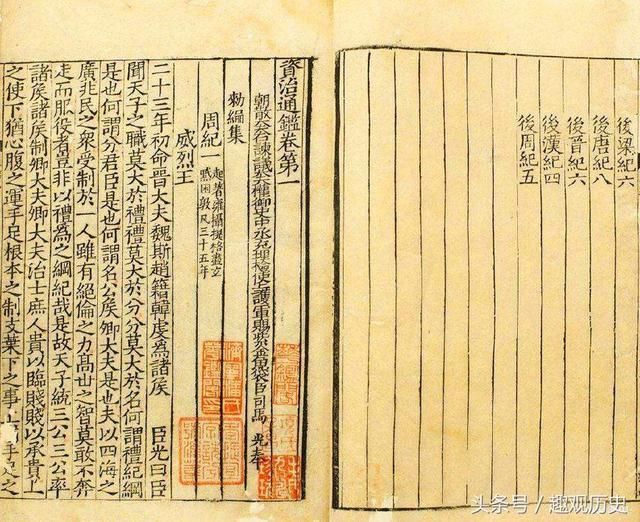 後梁紀六
後唐紀八
後晉紀六
後漢紀四
後周紀五
資治通鑑卷第一
朝散大夫右諫議大夫權御史中丞充理檢使上護軍賜紫金魚袋臣司馬 光奉
勑編集
周紀一 起著雍攝提格盡玄
黓困敦凡三十五年
威烈王
二十三年初命晉大夫魏斯趙籍韓虔爲諸矦 臣光曰臣
聞天子之職莫大於禮禮莫大於分分莫大於名何謂禮紀綱
是也何謂分君臣是也何謂名公矦卿大夫是也夫以四海之
廣兆民之衆受制於一人雖有絕倫之力高世之智莫敢不奔
走而服役者豈非以禮爲之綱紀哉是故天子統三公三公率
諸矦諸矦制卿大夫卿大夫治士庶人貴以臨賤賤以承貴上
之使下猶心腹之運手足根本之制支葉下之事上猶手足之
头条号 / 趣观历史